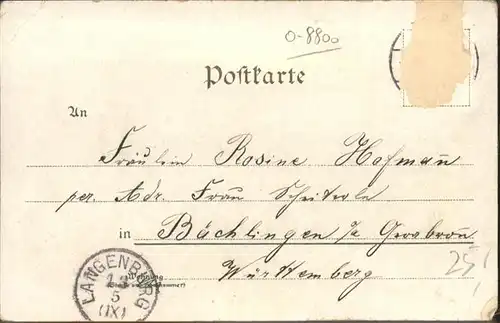 O-8800
Postkarte
An
Fräulein Rosine Hofman̄
per. Adr. Frau Scheterle
in Bächlingen b/ Gerabron̄
Württemberg
25
LANGENBURG
5
(IX)